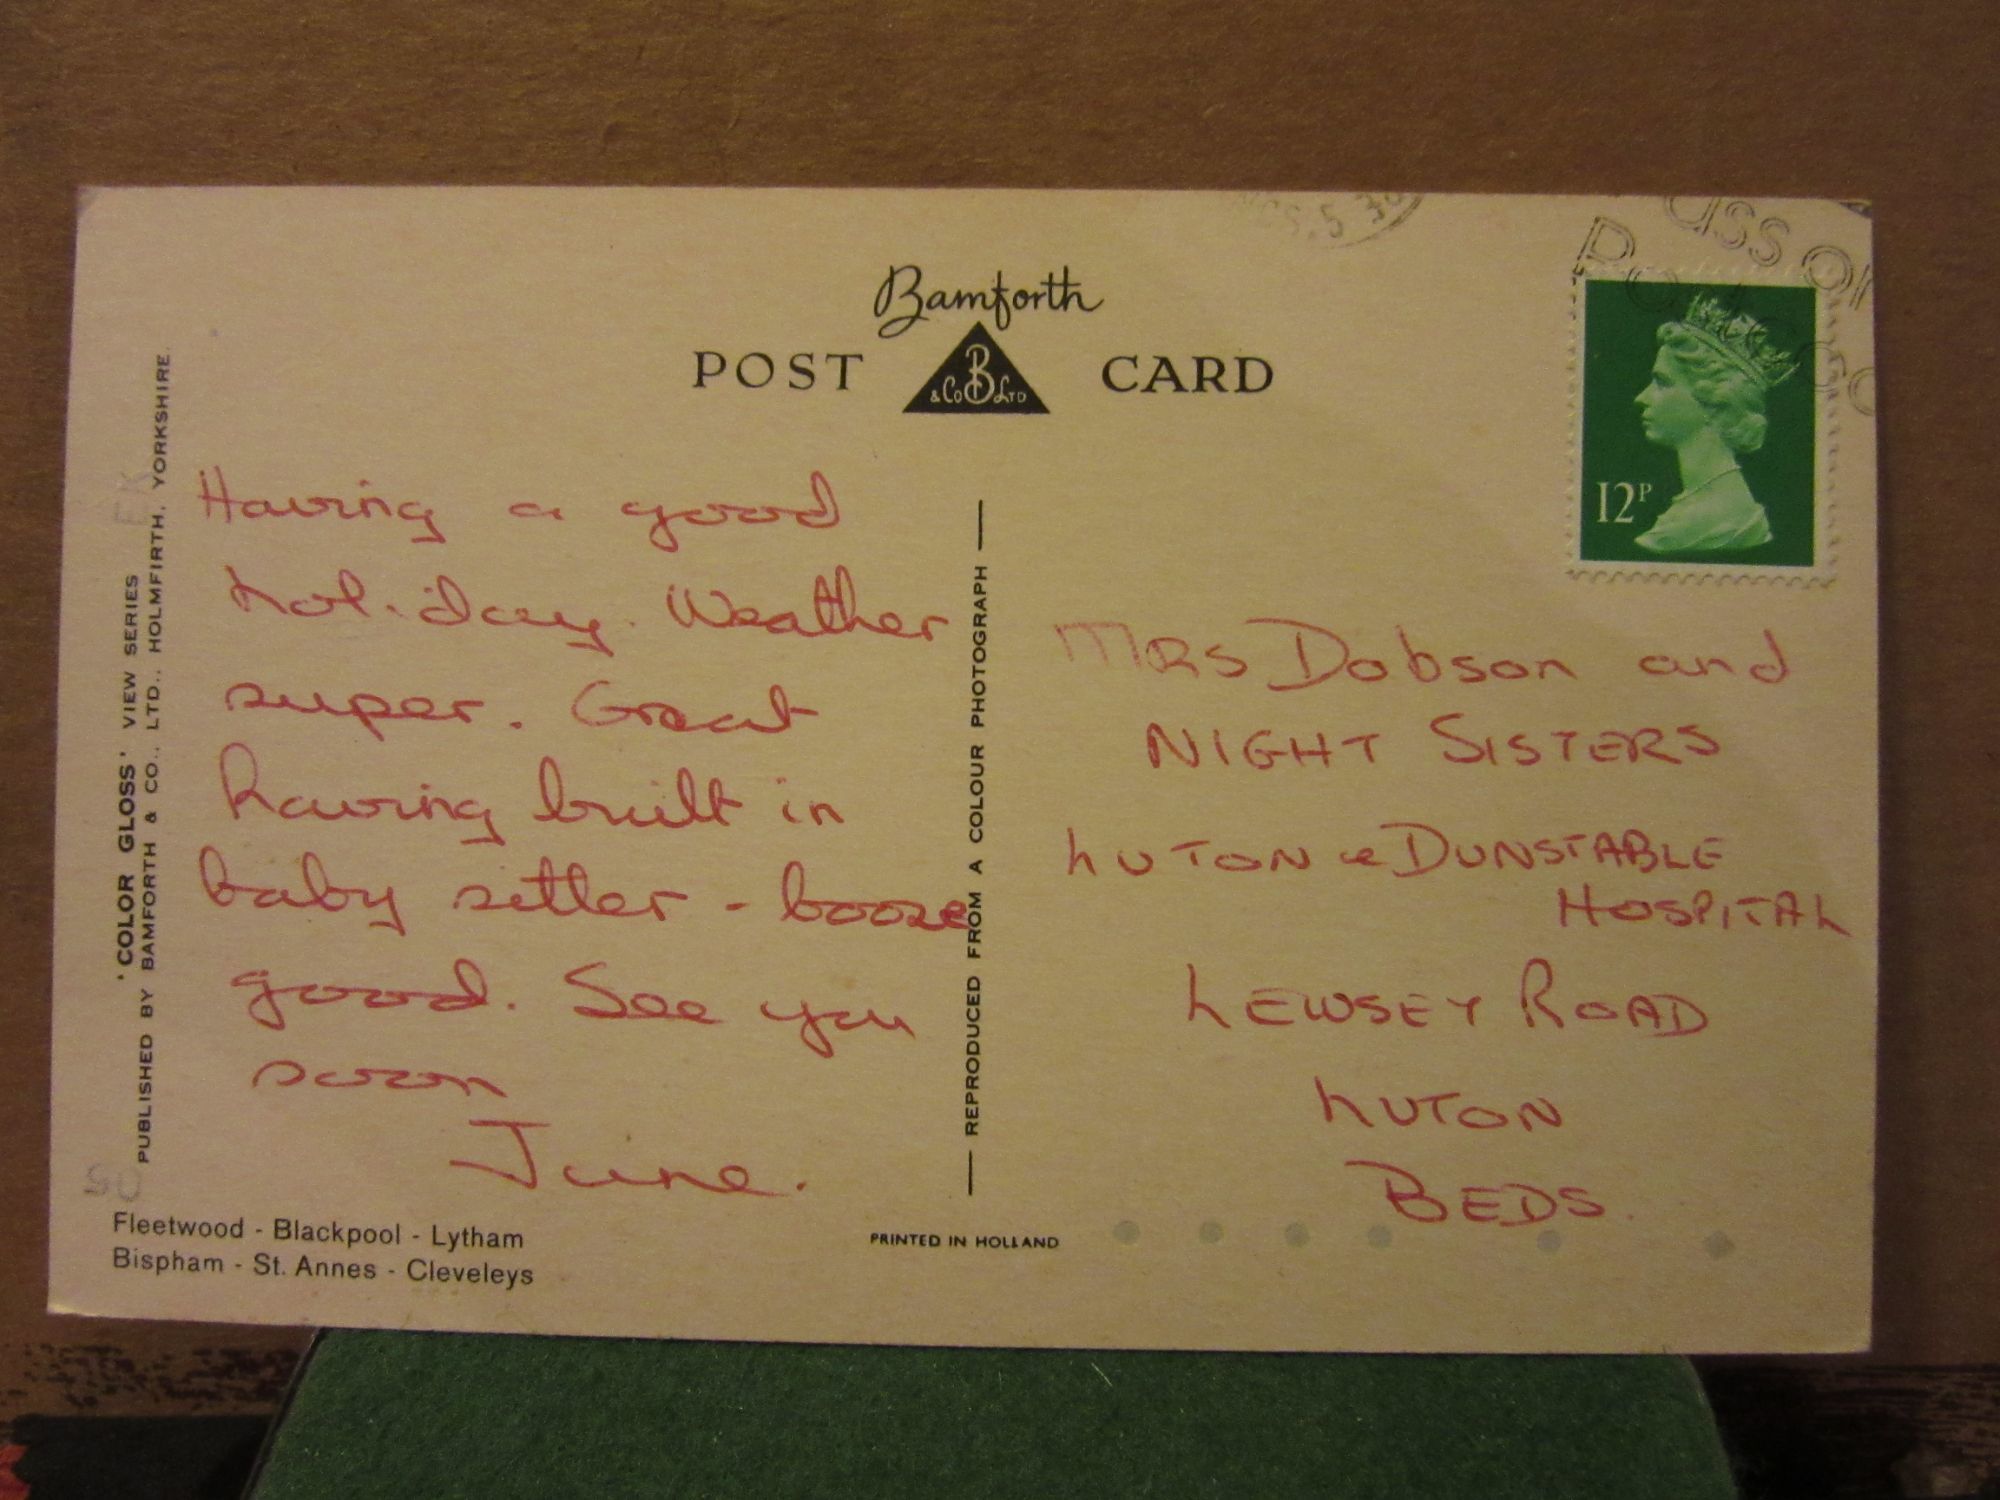 Bamforth
POST CARD
& Co B LTD
12P
Having a good
holiday. Weather
super. Great
having built in
baby sitter - booze
good. See you
soon
June.
Mrs Dobson and
NIGHT SISTERS
LUTON & DUNSTABLE
HOSPITAL
LEWSEY ROAD
LUTON
BEDS.
'COLOR GLOSS' VIEW SERIES
PUBLISHED BY BAMFORTH & CO., LTD., HOLMFIRTH, YORKSHIRE.
REPRODUCED FROM A COLOUR PHOTOGRAPH
Fleetwood - Blackpool - Lytham
Bispham - St. Annes - Cleveleys
PRINTED IN HOLLAND